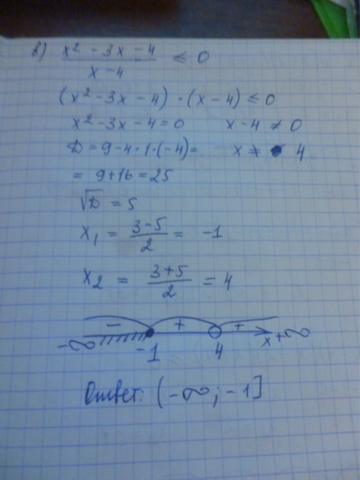 в) x² - 3x - 4 / x - 4 ≤ 0
(x² - 3x - 4) · (x - 4) ≤ 0
x² - 3x - 4 = 0 x - 4 ≠ 0
D = 9 - 4 · 1 · (-4) = x ≠ 4
= 9 + 16 = 25
√D = 5
x₁ = 3 - 5 / 2 = -1
x₂ = 3 + 5 / 2 = 4
- + +
-∞ -1 4 x +∞
Ответ: (-∞; -1]